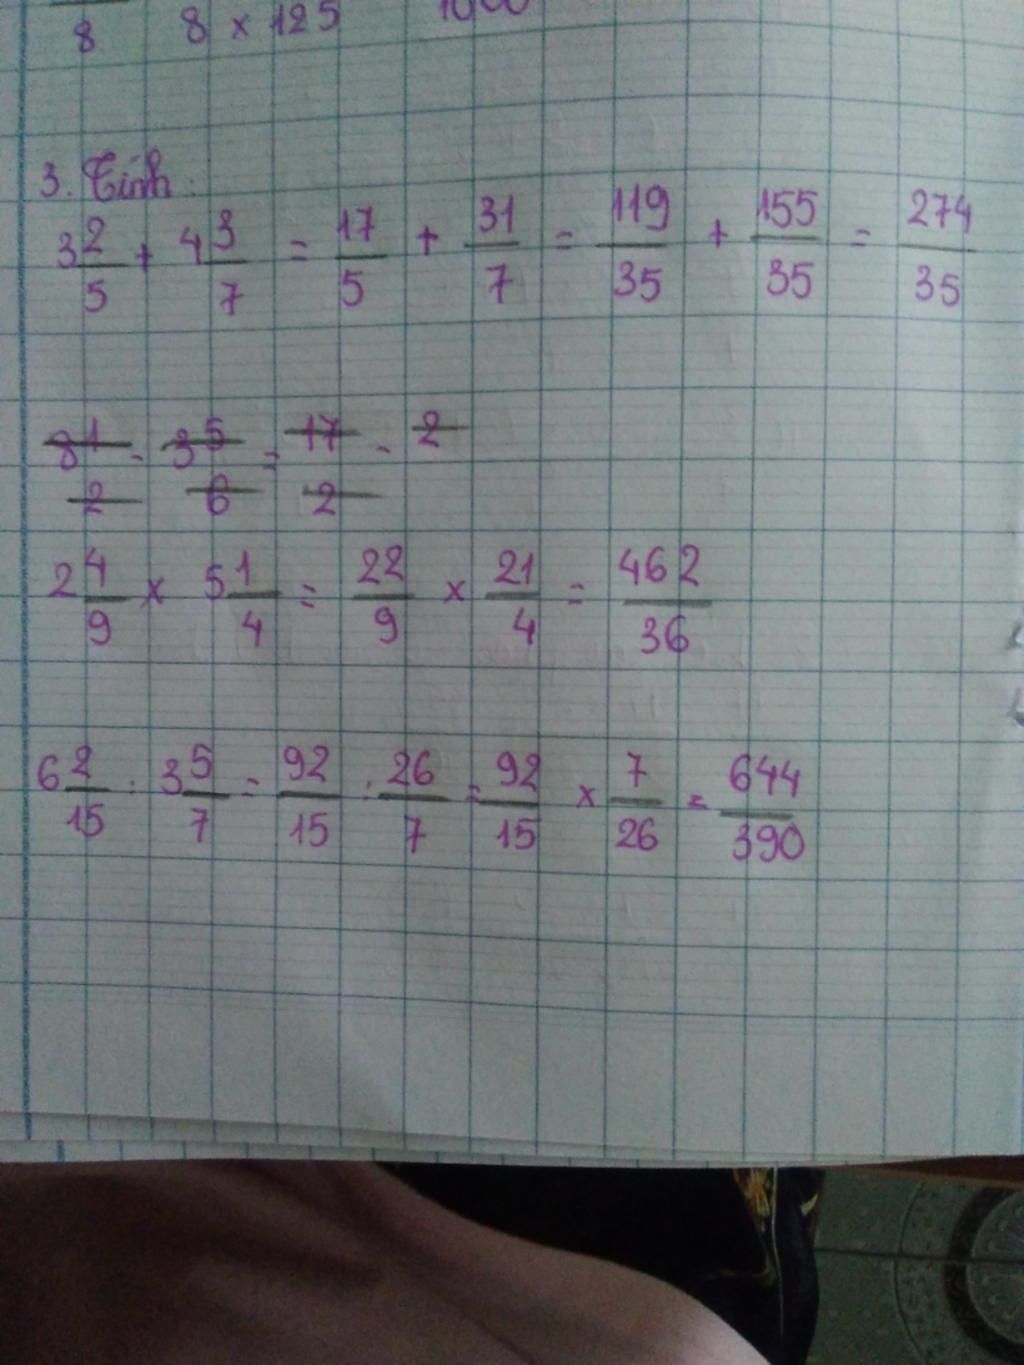 8 8 x 125 1000
3. Tính:
3 2/5 + 4 3/7 = 17/5 + 31/7 = 119/35 + 155/35 = 274/35
8 1/2 - 3 5/6 = 17/2 - 2
2 4/9 x 5 1/4 = 22/9 x 21/4 = 462/36
6 2/15 : 3 5/7 = 92/15 : 26/7 = 92/15 x 7/26 = 644/390